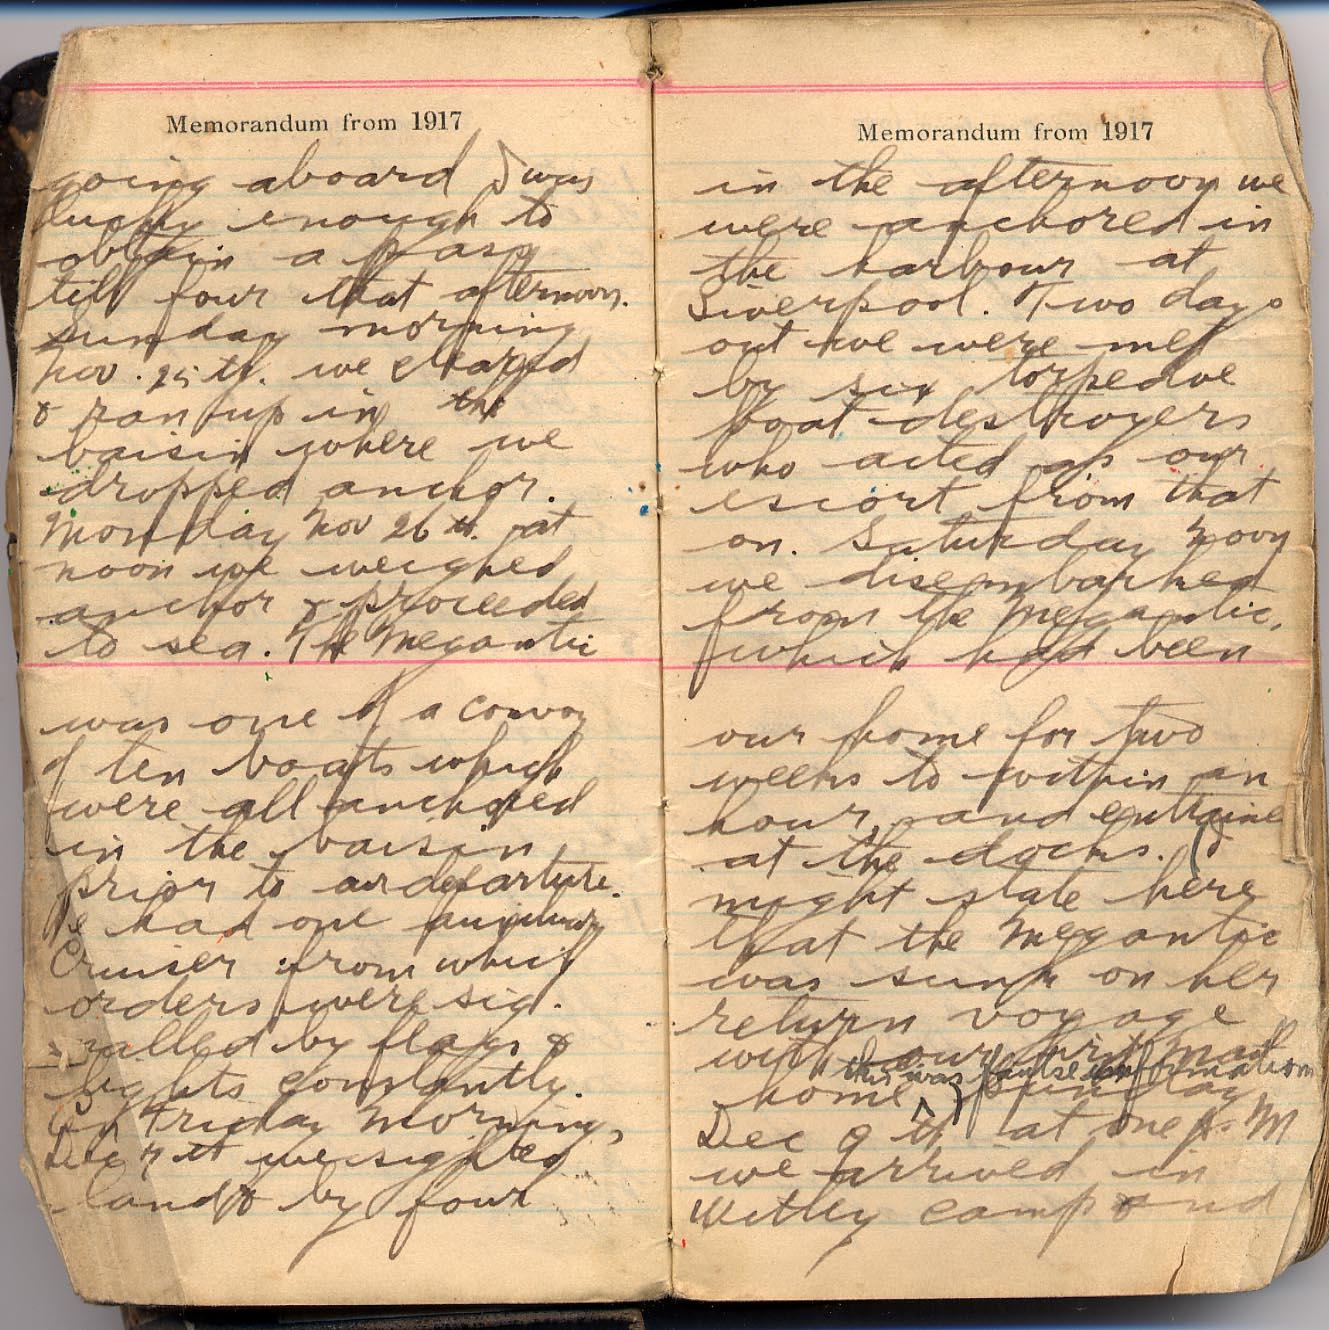 Memorandum from 1917
going aboard I was
lucky enough to
obtain a pass
till four that afternoon.
Sunday morning
Nov. 25th. we cleared
& ran up in the
baisin where we
dropped anchor.
Monday Nov 26th. at
noon we weighed
anchor & proceeded
to sea. The Megantic
was one of a convoy
of ten boats which
were all anchored
in the baisin
prior to our departure.
We had one auxiliary
Cruiser from which
orders were sig-
nalled by flags &
lights constantly.
On Friday morning,
Dec 7th we sighted
land & by four
Memorandum from 1917
in the afternoon we
were anchored in
the harbour at
Liverpool. Two days
out we were met
by six torpedoe
boat destroyers
who acted as our
escort from that
on. Saturday noon
we disembarked
from the Megantic,
which had been
our home for two
weeks to within an
hour, and entraine
at the docks. (I
might state here
that the Megantic
was sunk on her
return voyage
with our first mail
this was faulse information
home) Sunday
Dec 9th at one p.M
we arrived in
Witley camp and